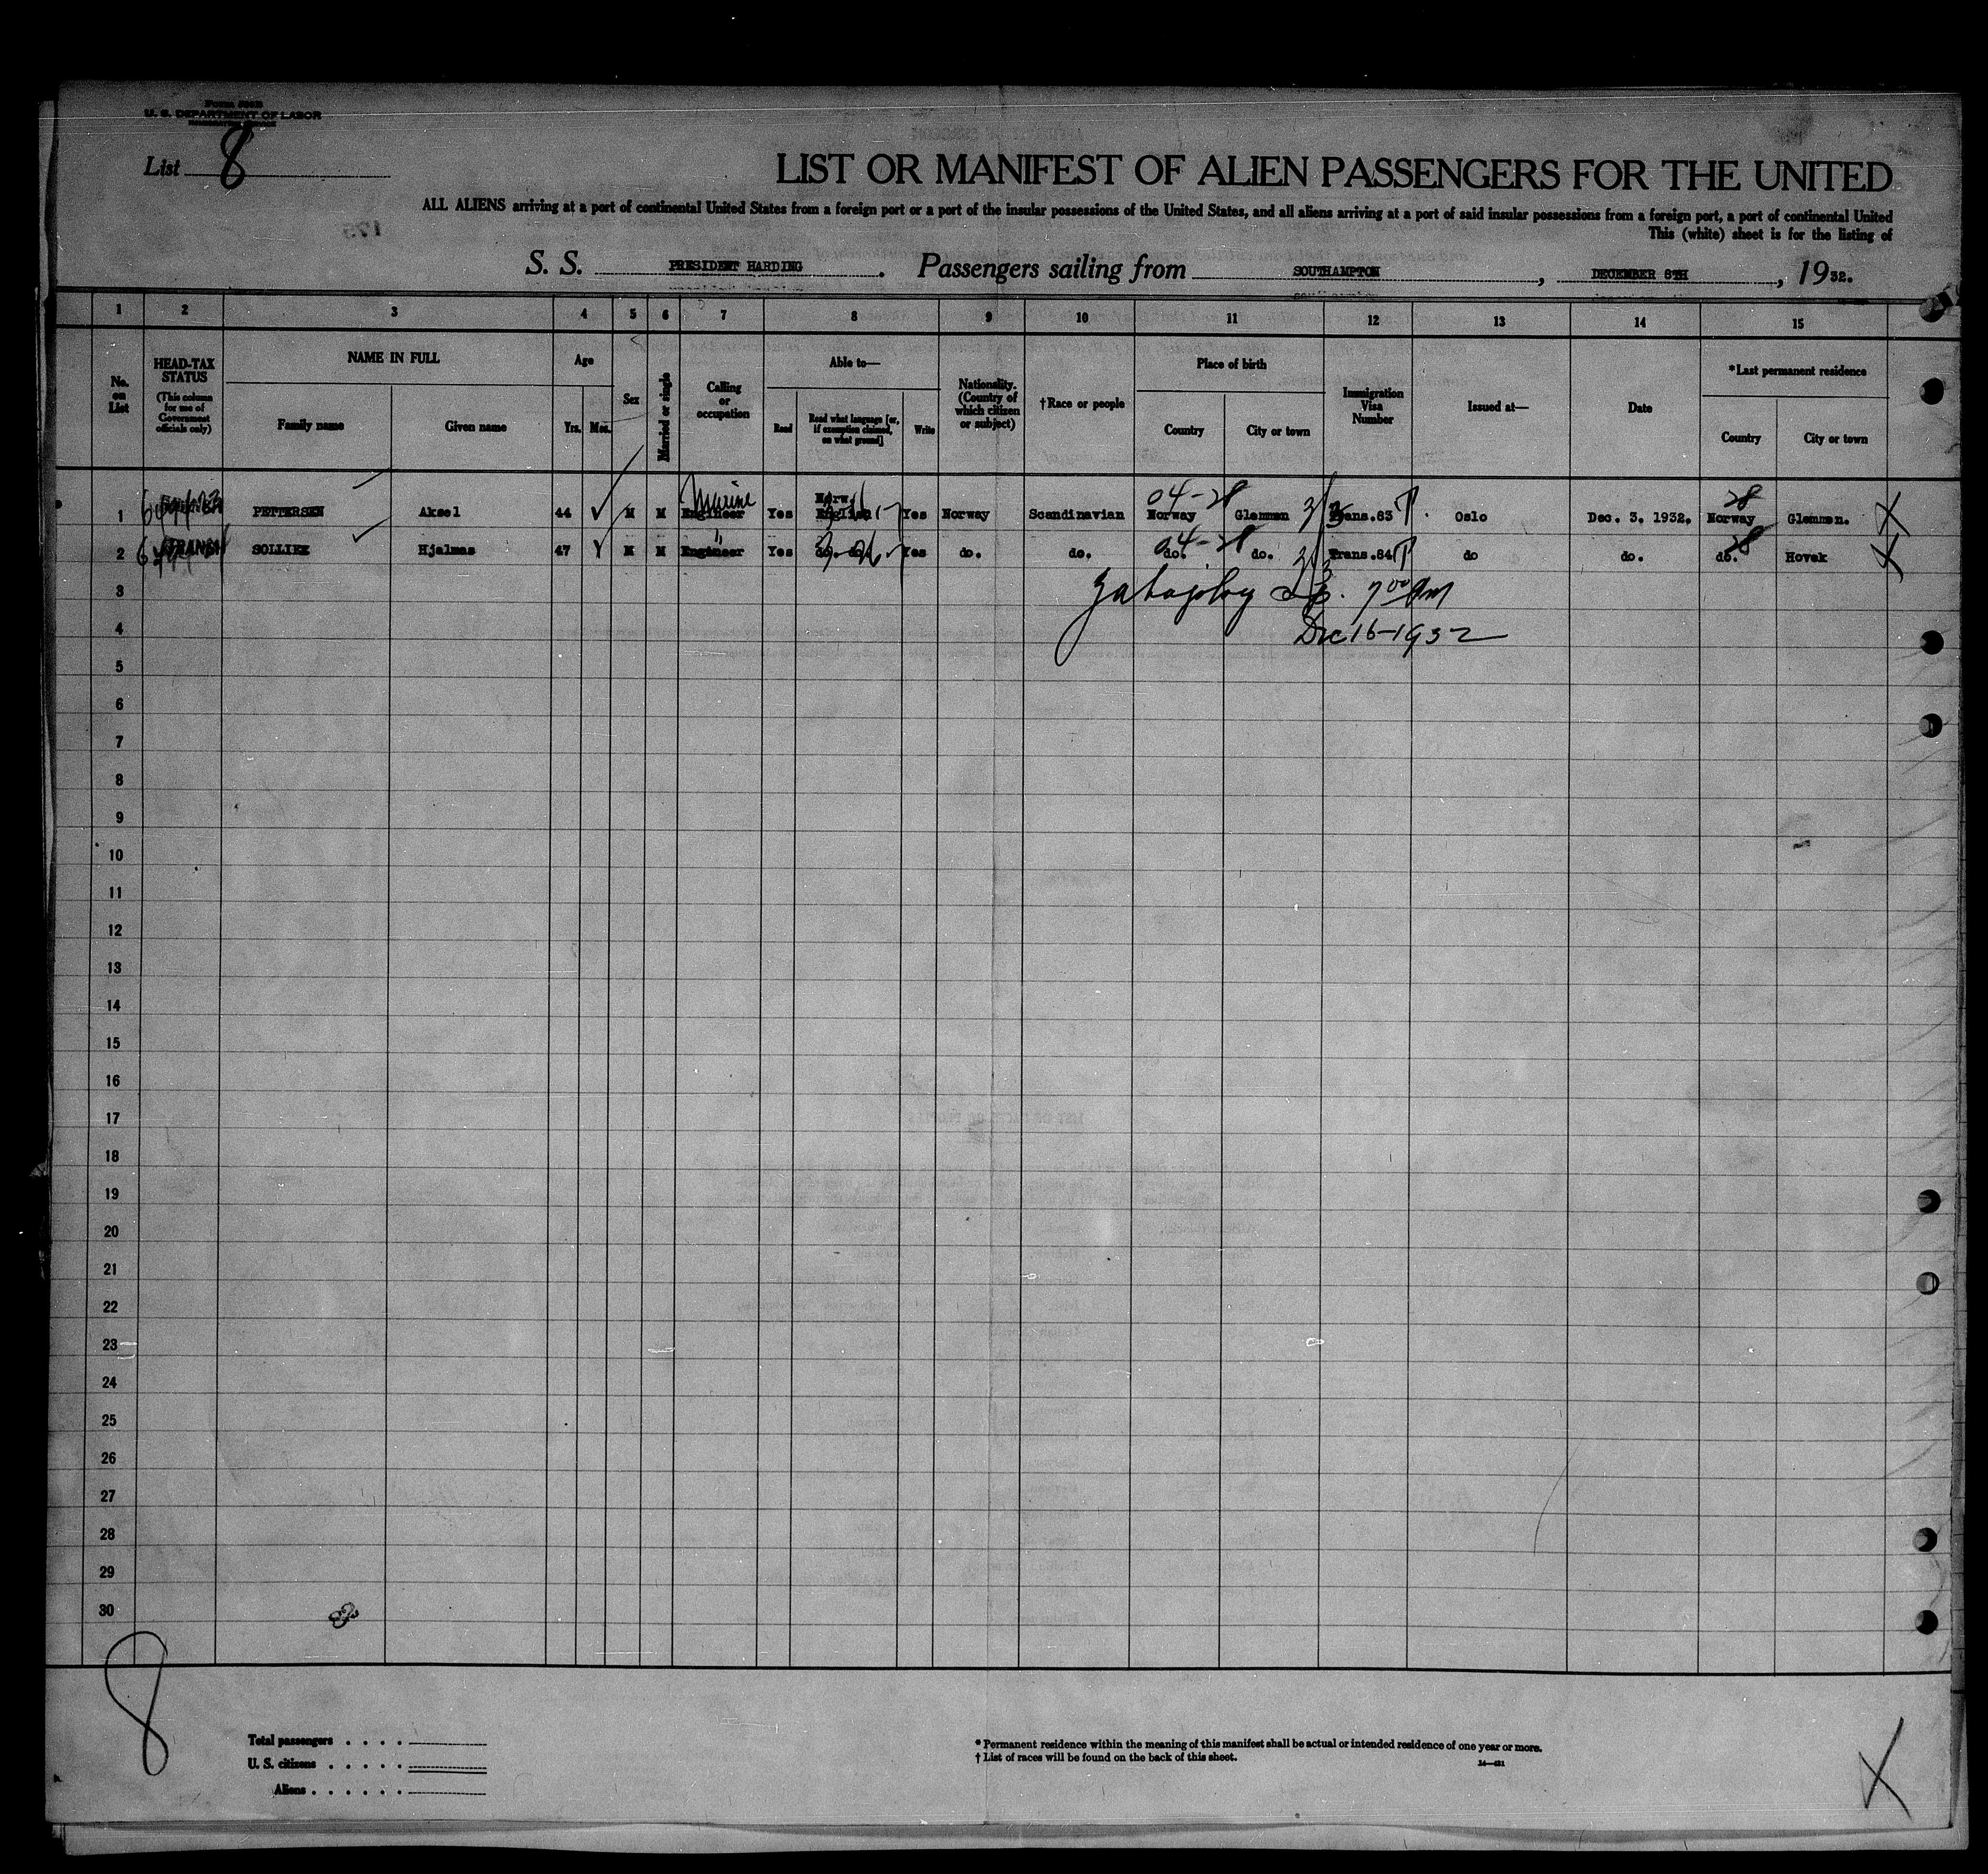 Form 500B
U. S. DEPARTMENT OF LABOR
IMMIGRATION SERVICE
List 8
LIST OR MANIFEST OF ALIEN PASSENGERS FOR THE UNITED
ALL ALIENS arriving at a port of continental United States from a foreign port or a port of the insular possessions of the United States, and all aliens arriving at a port of said insular possessions from a foreign port, a port of continental United
This (white) sheet is for the listing of
175
S. S. PRESIDENT HARDING. Passengers sailing from SOUTHAMPTON, DECEMBER 8TH, 1932.
1 2 3 4 5 6 7 8 9 10 11 12 13 14 15
No. on List
HEAD-TAX STATUS (This column for use of Government officials only)
NAME IN FULL
Family name Given name
Age
Yrs. Mos.
Sex
Married or single
Calling or occupation
Able to—
Read Read what language [or, if exemption claimed, on what ground] Write
Nationality. (Country of which citizen or subject)
†Race or people
Place of birth
Country City or town
Immigration Visa Number
Issued at—
Date
*Last permanent residence
Country City or town
Marine Norw. 04-28 28
1 PETTERSEN Aksel 44 M M Engineer Yes English Yes Norway Scandinavian Norway Glemmen Trans.83 Oslo Dec. 3. 1932. Norway Glemmen. X
" 04-28 28
2 TRANSIT SOLLIEE Hjalmas 47 M M Engineer Yes do. do. Yes do. do. do. do. Trans.84 do do. do. Hovek X
3 7 00 Am
4 Dec 16-1932
5
6
7
8
9
10
11
12
13
14
15
16
17
18
19
20
21
22
23
24
25
26
27
28
29
30
8
Total passengers . . . .
U. S. citizens . . . . .
Aliens . . . . . .
* Permanent residence within the meaning of this manifest shall be actual or intended residence of one year or more.
† List of races will be found on the back of this sheet.
14—481
X